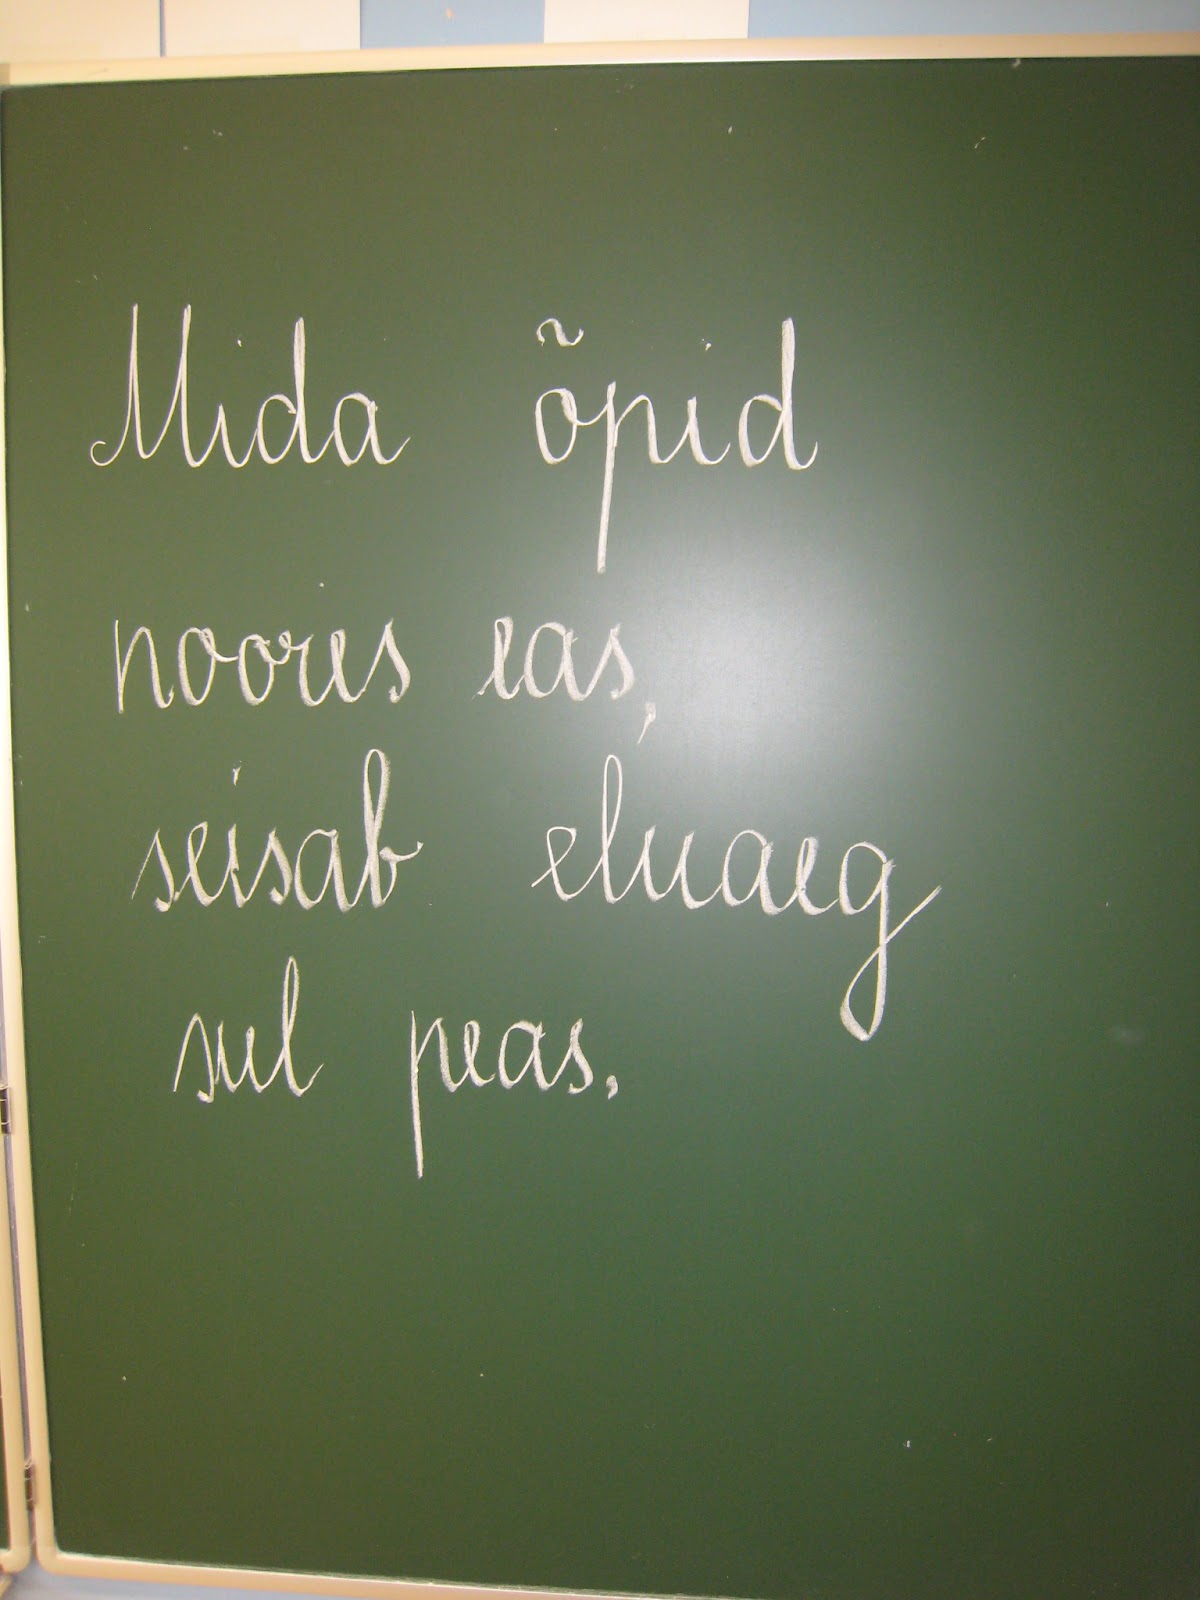 Mida õpid
noores eas,
seisab eluaeg
sul peas.